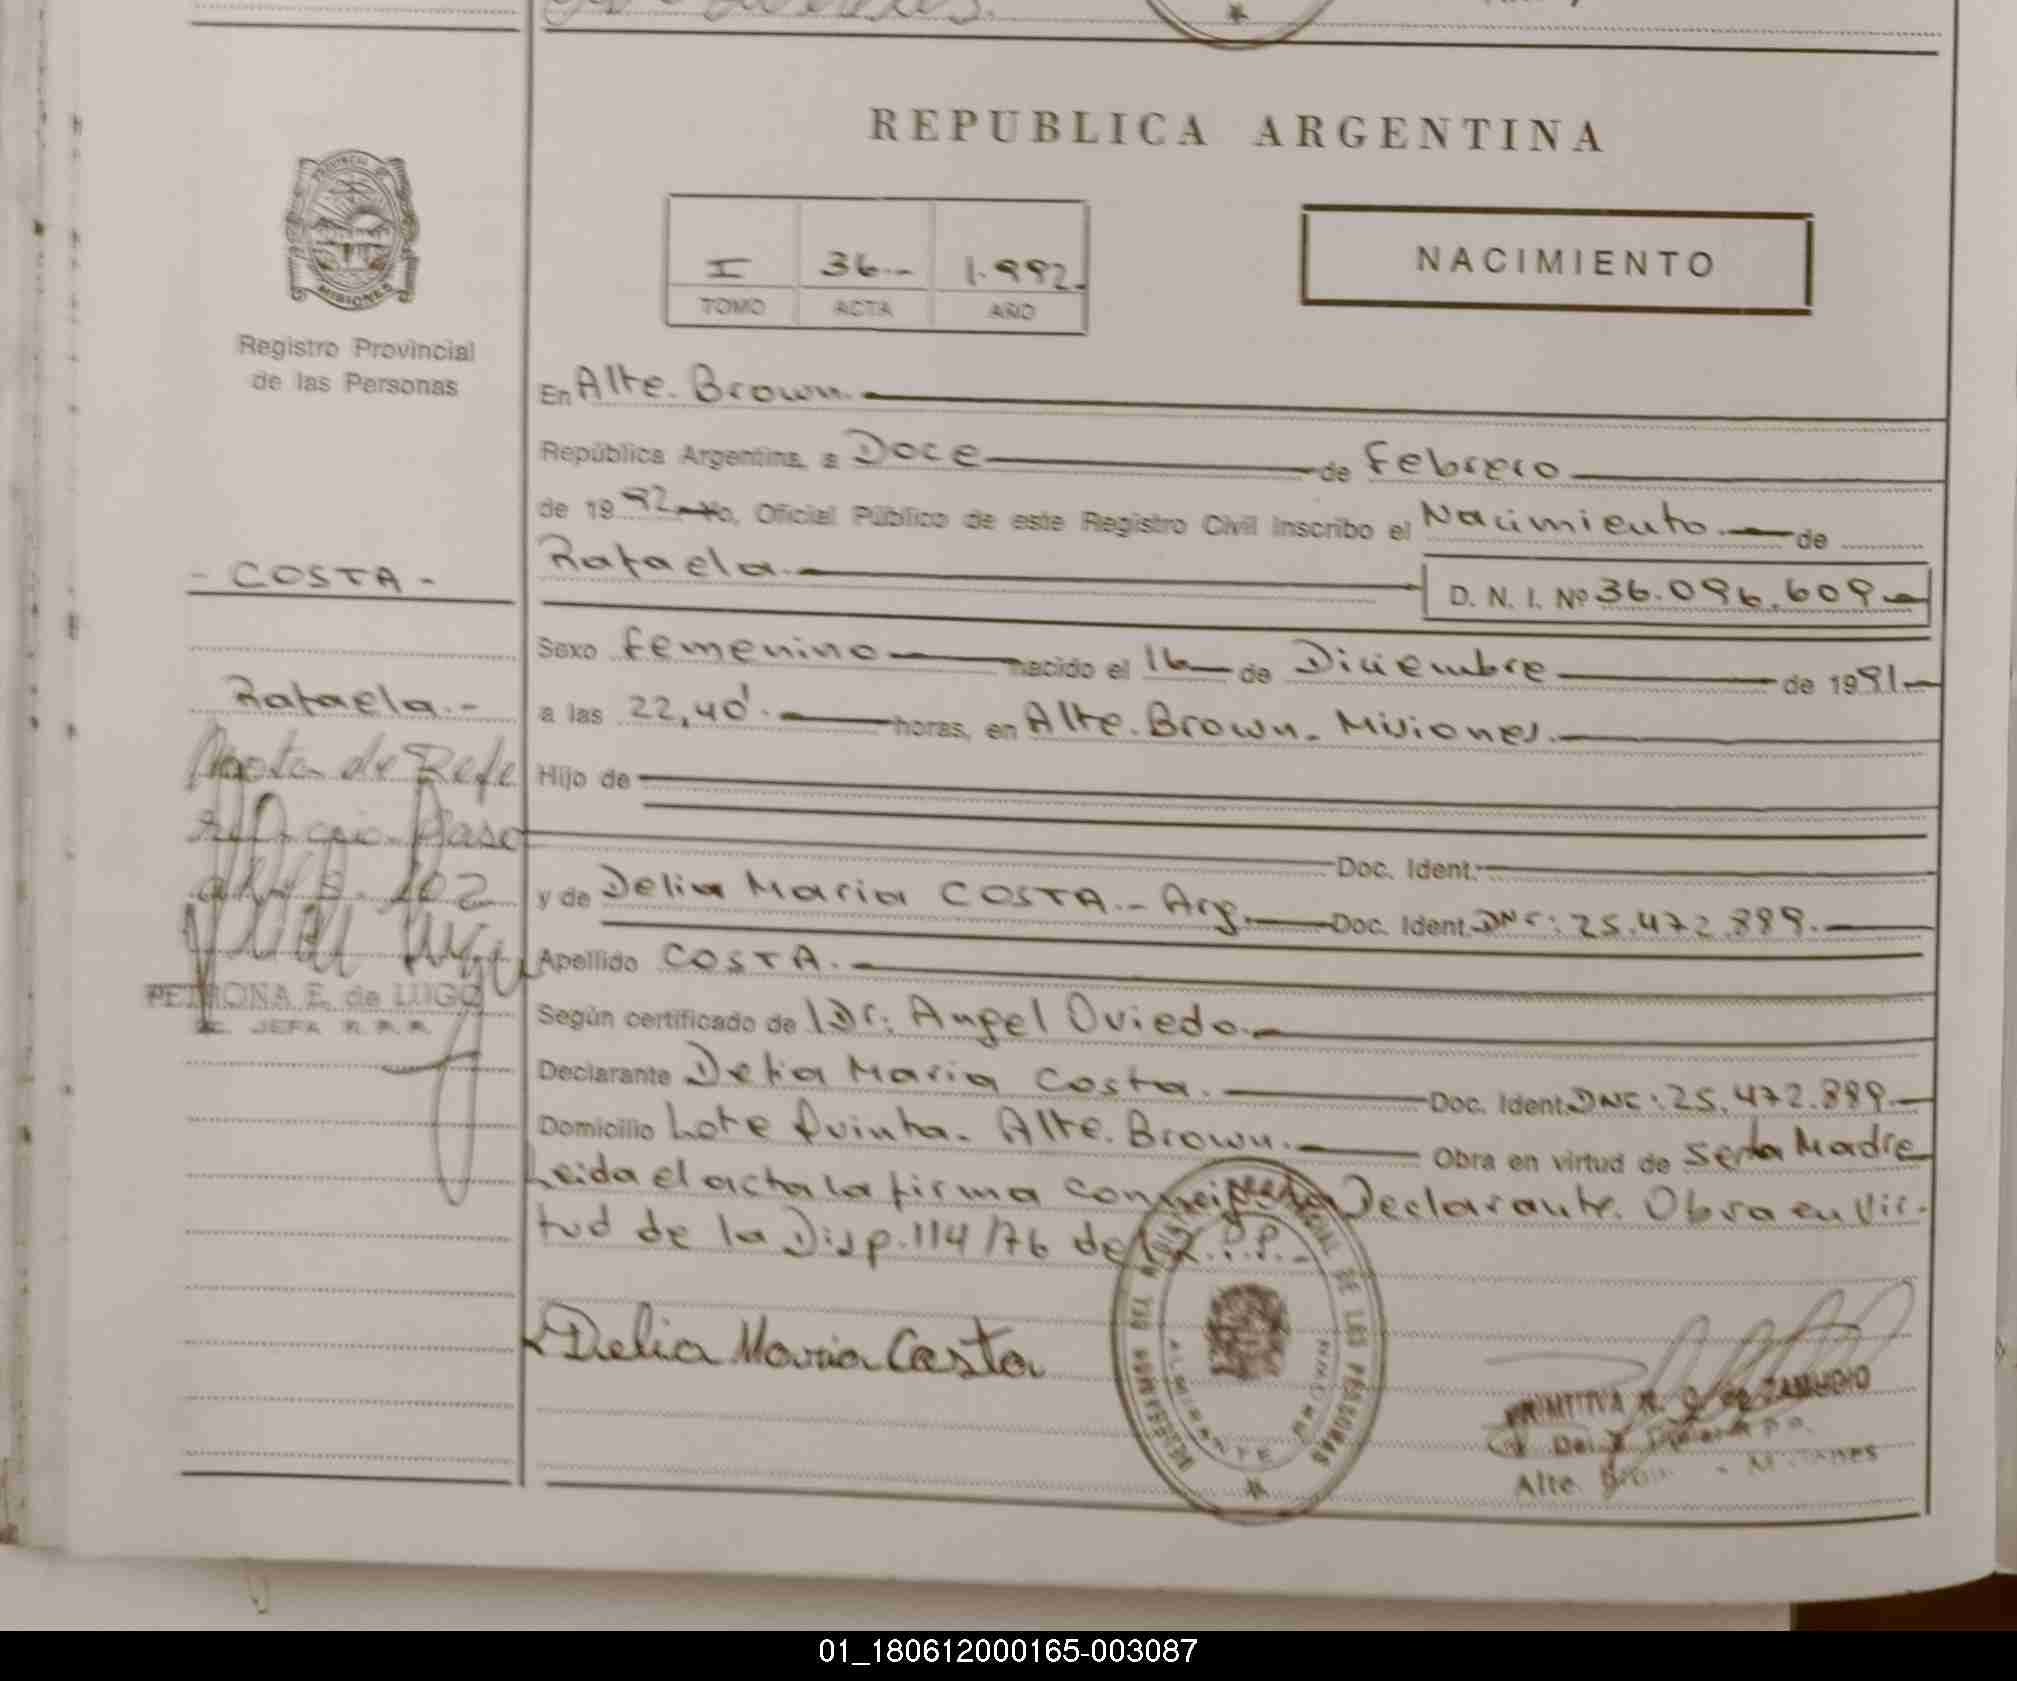 REPUBLICA ARGENTINA
MISIONES
Registro Provincial
de las Personas
I 36.- 1.992.
TOMO ACTA AÑO
NACIMIENTO
En Alte. Brown.
República Argentina, a Doce de Febrero
de 1992 Yo, Oficial Público de este Registro Civil inscribo el Nacimiento.- de
Rafaela.- D. N. I. Nº 36.096.609
Sexo femenino nacido el 16 de Diciembre de 1991.-
a las 22,40'.- horas, en Alte. Brown. Misiones.
Hijo de
Doc. Ident.
y de Delia Maria COSTA.- Arg. Doc. Ident. DNI: 25.472.889.-
Apellido COSTA.-
Según certificado de Dr. Angel Oviedo.-
Declarante Delia Maria Costa. Doc. Ident. DNI: 25.472.889.-
Domicilio Lote Quinta. Alte. Brown.- Obra en virtud de Ser la Madre
Leida el acta la firma conmigo la Declarante. Obra en Vir-
tud de la Disp. 114/76 del R.P.P.-
Delia Maria Costa
- COSTA -
Rafaela.-
Nota de Refe
PETRONA E. de LUGO
JEFA R.P.P.
DE LAS PERSONAS
ALMIRANTE
PRIMITIVA R. G. de ZAMUDIO
Alte. Brown - Misiones
01_180612000165-003087